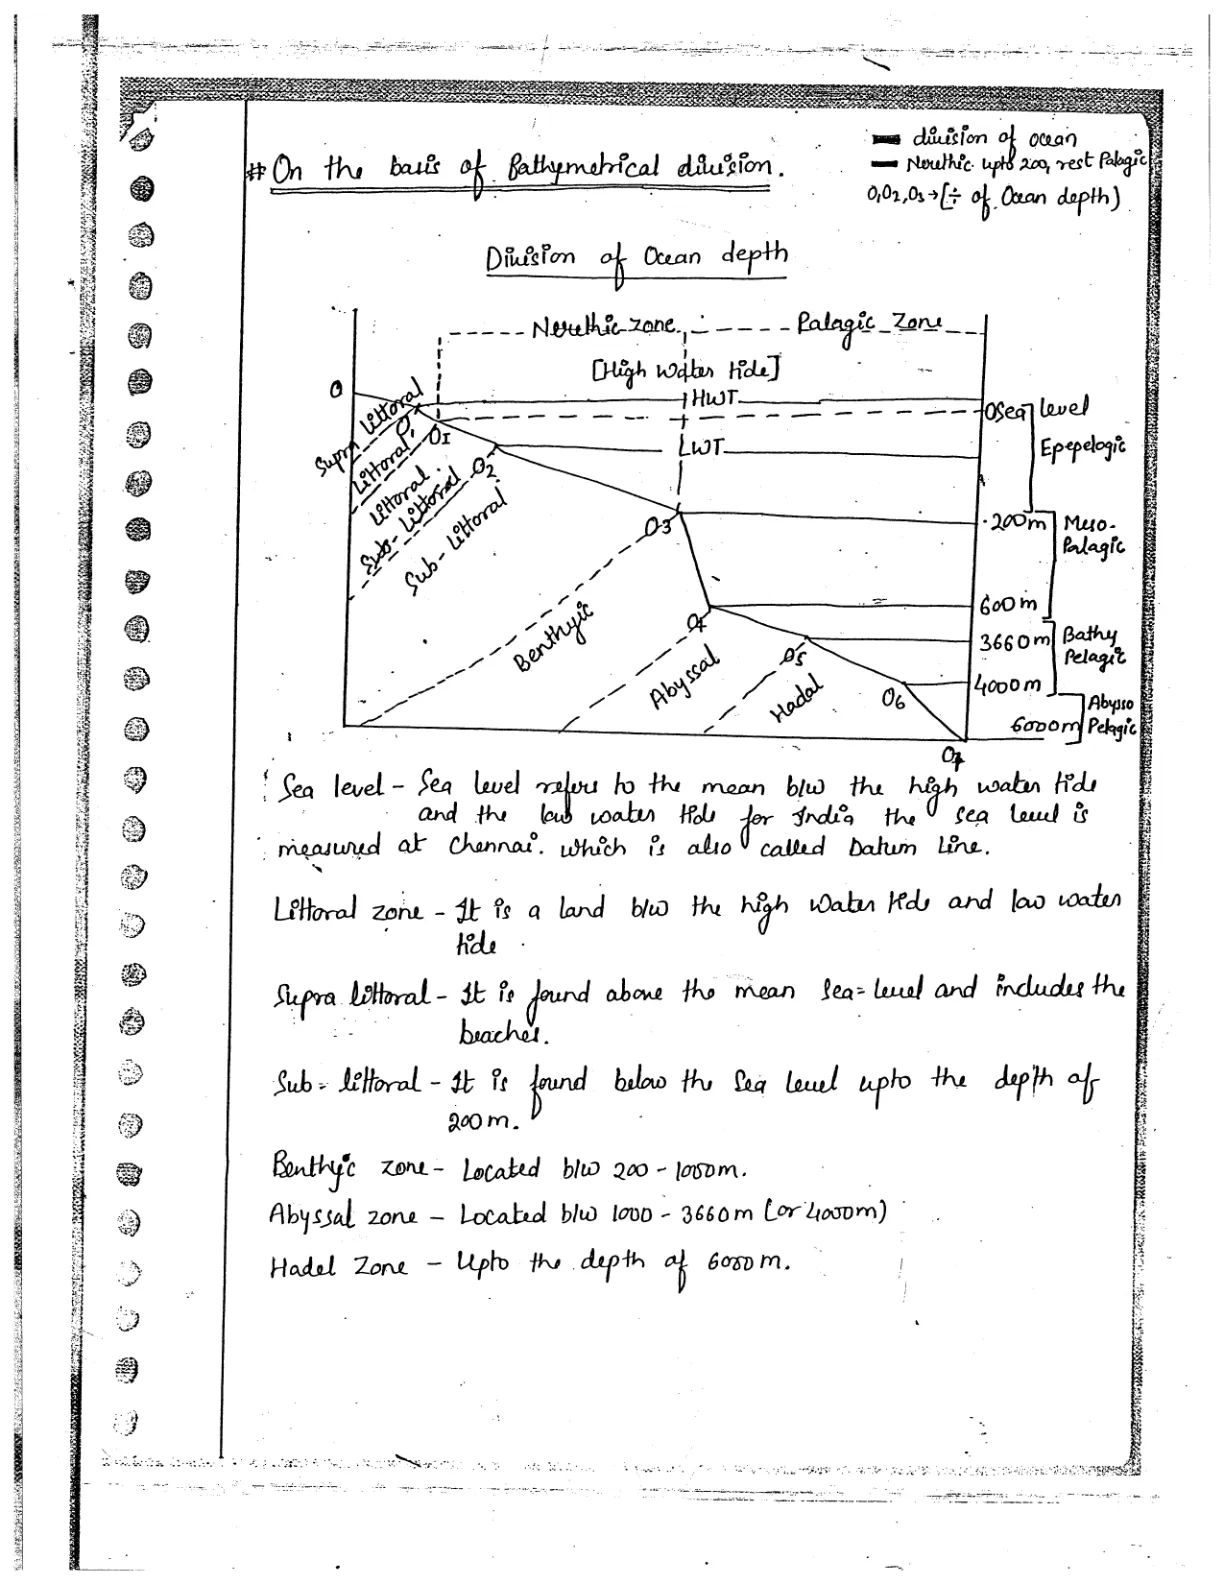 division of ocean
Nerethic upto 200, rest Palagic
O1O2,O3→[÷ of Ocean depth)
#On the basis of Bathymetrical division.
Division of Ocean depth
Nerethic zone
Palagic Zone
[High water tide]
O
HWT
OSea level
LWT
Epepelogic
Supra Littoral
O'
Littoral
O1
Littoral
Sub-Littoral
O2
Sub-Littoral
O3
200m
Meso-
Palagic
600m
Benthyic
O4
3660m
Bathy
Pelagic
Abyssal
O5
Hadal
O6
4000m
Abysso
6000m
Pelagic
O7
Sea level - Sea level refers to the mean b/w the high water tide
and the low water tide for India the sea level is
measured at Chennai. which is also called Datum Line.
Littoral zone - It is a land b/w the high water tide and low water
tide
Supra littoral - It is found above the mean Sea= level and includes the
beaches.
Sub - littoral - It is found below the Sea level upto the depth of
200m.
Benthyic zone - Located b/w 200 - 1000m.
Abyssal zone - Located b/w 1000 - 3660m (or 4000m)
Hadel Zone - Upto the depth of 6000m.